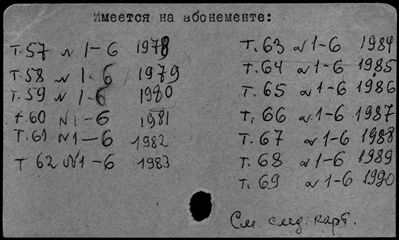 Имеется на абонементе:
Т.57 N 1-6 1978
Т.58 N 1-6 1979
Т.59 N 1-6 1980
т 60 N 1-6 1981
Т.61 N1-6 1982
Т 62 N1-6 1983
Т.63 N1-6 1984
Т.64 N1-6 1985
Т.65 N1-6 1986
Т.66 N1-6 1987
Т.67 N1-6 1988
Т.68 N1-6 1989
Т.69 N1-6 1990
См. след. карт.